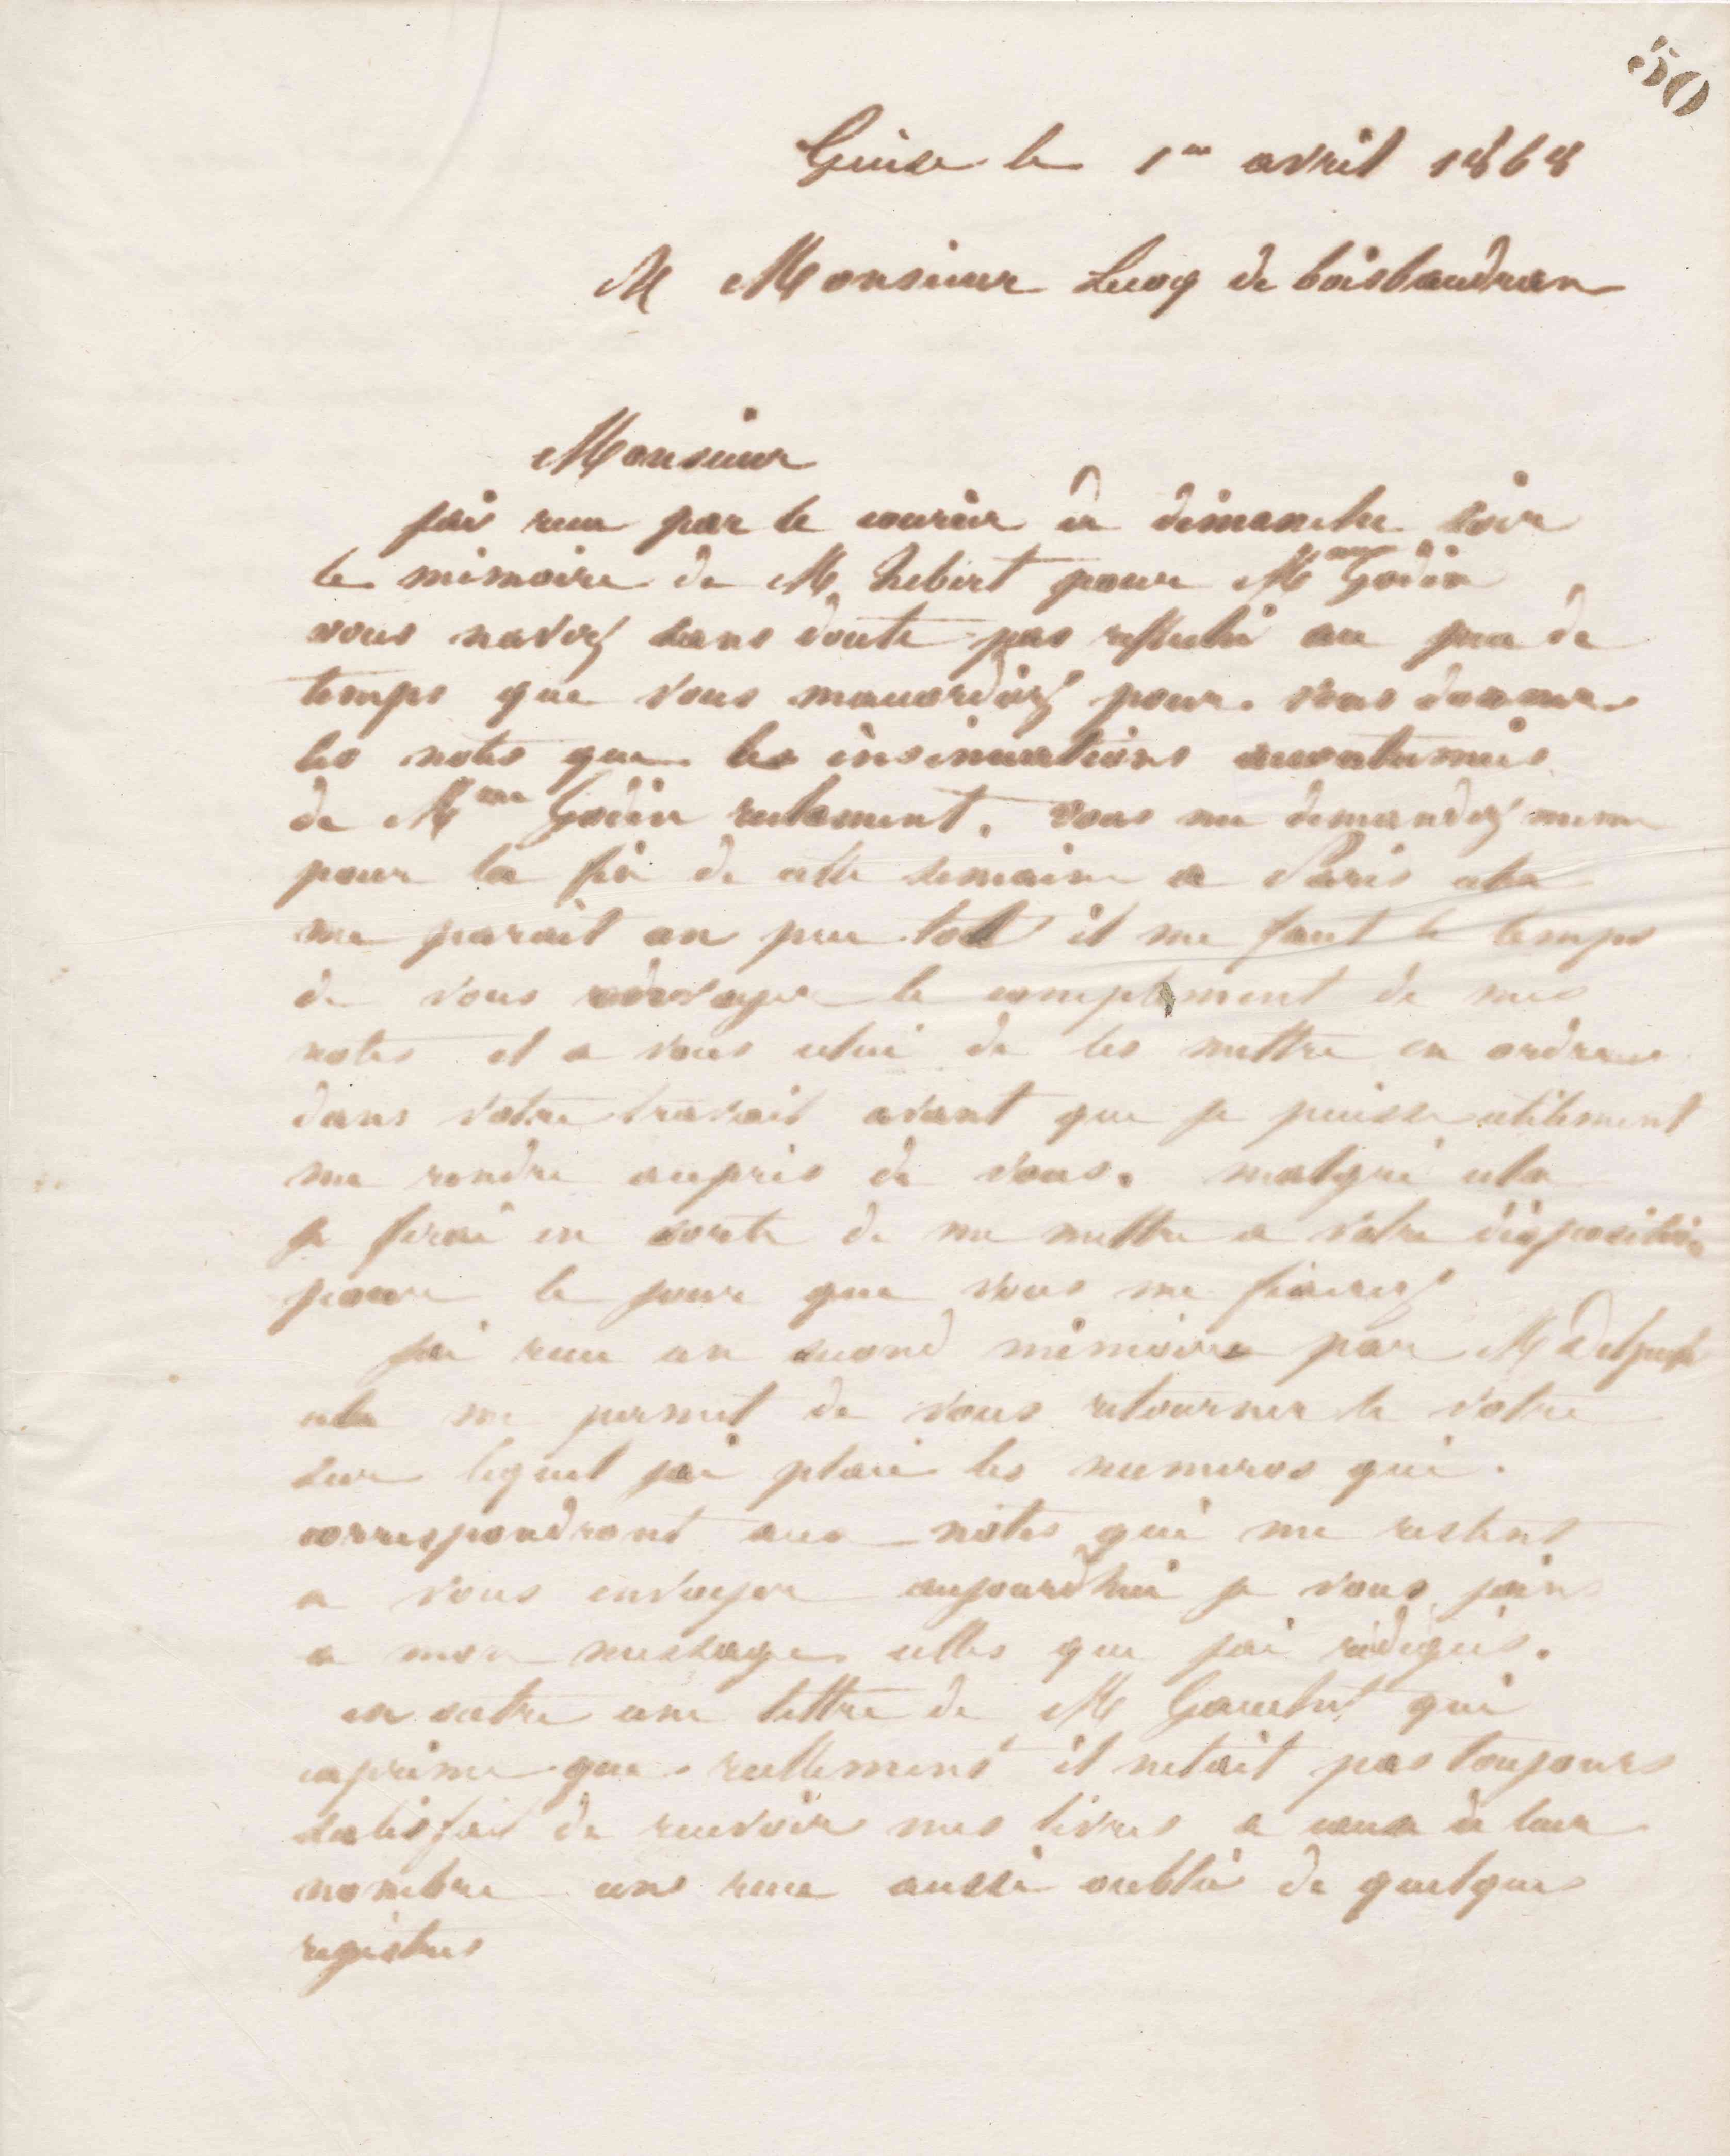 50
Guise le 1er avril 1868
M Monsieur Lecoq de boisbaudran
Monsieur
jai recu par le courier de dimanche soir
le memoire de M. hebert pour Mme Godin
vous navez sans doute pas reflechi au peu de
temps que vous maccordiez pour vous donner
les notes que les insinuations
de Mme Godin reclament. vous me demandez meme
pour la fin de cette semaine a Paris cela
me parait un peu tot il me faut le temps
de vous le complement de mes
notes et a vous celui de les mettre en ordre
dans votre travail avant que je puisse utilement
me rendre aupres de vous. malgre cela
je ferai en sorte de me mettre a votre disposition
pour le jour que vous me fixerez
jai recu un second memoire par M Delpech
cela me permet de vous retourner le votre
sur lequel jai place les numeros qui
correspondront aux notes qui me restent
a vous envoyer aujourdhui je vous joins
a mon message celles que jai redigees.
en outre une lettre de M qui
exprime que reellement il netait pas toujours
satisfait de recevoir mes livres a cause de leur
nombre aussi oublie de quelques
registres